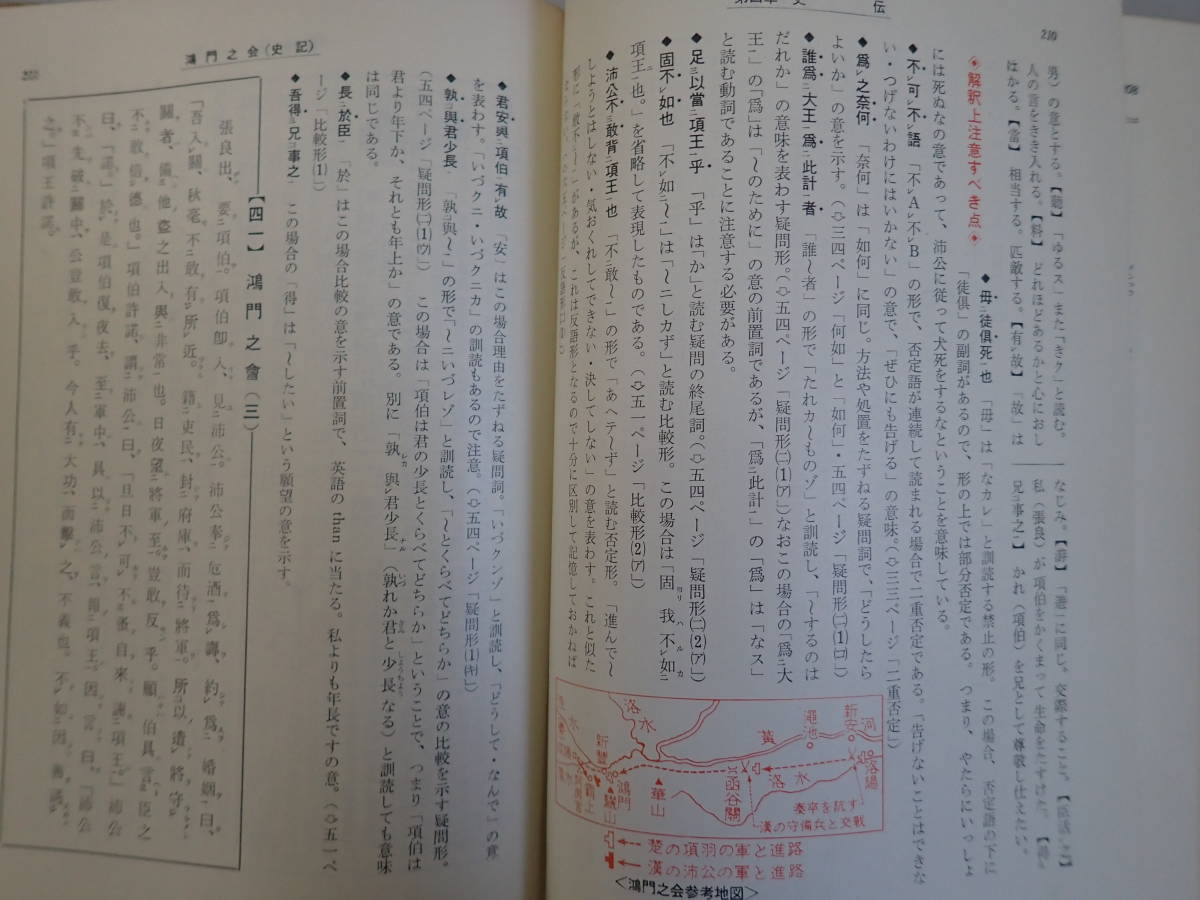 第四章 史 伝
210
男）の意とする。【聽】「ゆるス」また「きク」と読む。
人の言をきき入れる。【料】どれほどあるかと心におし
はかる。【當】相当する。匹敵する。【有レ故】「故」は
なじみ。【游】「遊」に同じ。交際すること。
私（張良）が項伯をかくまって生命をたすけた。
兄事之】かれ（項伯）を兄として尊敬し仕えたい。
◆解釈上注意すべき点◆
◆毋二徒俱死一也 「毋」は「なカレ」と訓読する禁止の形。この場合、否定語の下に
「徒俱」の副詞があるので、形の上では部分否定である。つまり、やたらにいっしょ
には死ぬなの意であって、沛公に従って犬死をするなということを意味している。
◆不レ可レ不レ語 「不レA不レB」の形で、否定語が連続して読まれる場合で二重否定である。「告げないことはできな
い・つげないわけにはいかない」の意で、「ぜひにも告げる」の意味。（⇨三三ページ「二重否定」）
◆爲レ之奈何 「奈何」は「如何」に同じ。方法や処置をたずねる疑問詞で、「どうしたら
よいか」の意を示す。（⇨三四ページ「何如」と「如何」・五四ページ「疑問形㈡⑴㋺」）
◆誰爲二大王一爲二此計一者 「誰〜者」の形で「たれカ〜ものゾ」と訓読し、「〜するのは
だれか」の意味を表わす疑問形。（⇨五四ページ「疑問形㈡⑴㋐」）なおこの場合の「爲二大
王一」の「爲」は「〜のために」の意の前置詞であるが、「爲二此計一」の「爲」は「なス」
と読む動詞であることに注意する必要がある。
◆足三以當二項王一乎 「乎」は「か」と読む疑問の終尾詞。（⇨五四ページ「疑問形㈡⑵㋐」）
◆固不レ如也 「不レ如二〜一」は「〜ニしカず」と読む比較形。この場合は「固 我 不レ如二
項王一也。」を省略して表現したものである。（⇨五一ページ「比較形⑵㋐」）
◆沛公不三敢背二項王一也 「不二敢〜一」の形で「あヘテ〜ず」と読む否定形。「進んで〜
しようとはしない・気おくれしてできない・決してしない」の意を表わす。これと似た
形に「敢不二〜一」があるが、これは反語形となるので十分に区別して記憶しておかねば
河
新安
洛陽
黄
澠池
洛水
函谷關
秦卒を抗す
漢の守備兵と交戦
洛水
華山
新豐
鴻門
驪山
覇上
楚の項羽の軍と進路
漢の沛公の軍と進路
＜鴻門之会参考地図＞
鴻門之会（史記）
◆君安與二項伯一有レ故 「安」はこの場合理由をたずねる疑問詞。「いづクンゾ」と訓読し、「どうして・なんで」の意
を表わす。「いづクニ・いづクニカ」の訓読もあるので注意。（⇨五四ページ「疑問形⑴㋖」）
◆孰三與君少長一 「孰二與〜一」の形で「〜ニいづレゾ」と訓読し、「〜とくらべてどちらか」の意の比較を示す疑問形。
（五四ページ「疑問形㈡⑴㋒」）この場合は「項伯は君の少長とくらべてどちらか」ということで、つまり「項伯は
君より年下か、それとも年上か」の意である。別に「孰 與レ君少長」（孰れか君と少長なる）と訓読しても意味
は同じである。
◆長二於臣一 「於」はこの場合比較の意を示す前置詞で、英語の than に当たる。私よりも年長ですの意。（⇨五一ペ
ージ「比較形⑴」）
◆吾得三兄二事之一 この場合の「得」は「〜したい」という願望の意を示す。
【四一】鴻門之會（三）
張良出、要二項伯一。項伯卽入、見二沛公一。沛公奉二卮酒一爲レ壽、約爲二婚姻一曰、
「吾入レ關、秋毫不二敢有一レ所レ近。籍二吏民一、封二府庫一、而待二將軍一。所三以遣レ將守レ
關者、備二他盜之出入與非常一也。日夜望二將軍至一。豈敢反乎。願伯具言三臣之
不二敢倍一レ德也。」項伯許諾。謂二沛公一曰、「旦日不レ可レ不三蚤自來謝二項王一。」沛公
曰、「諾。」於レ是項伯復夜去、至二軍中一、具以二沛公言一報二項王一。因言曰、「沛公
不三先破二關中一、公豈敢入乎。今人有二大功一而擊レ之、不義也。不レ如二因善遇レ
之一。」項王許諾。